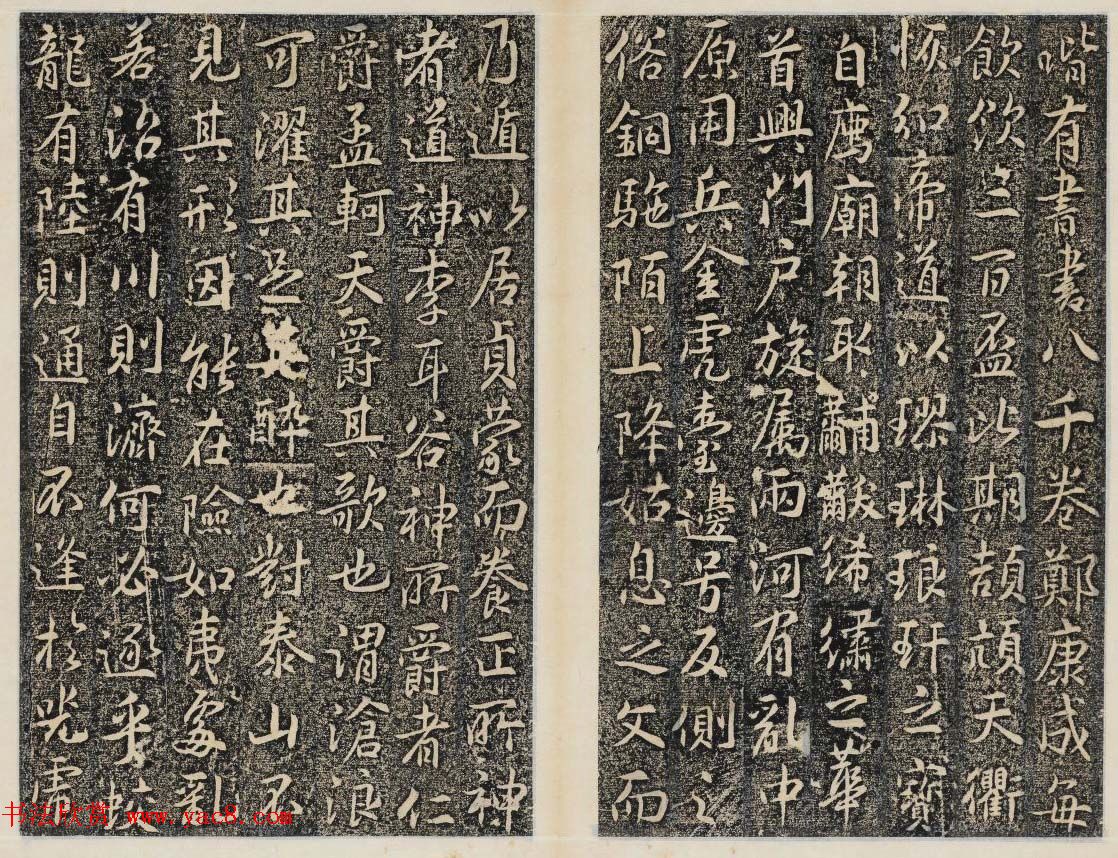 喈有書書八千卷鄭康成每
飲飲三百盃此期頡頏天衢
恢弘帝道以璆琳琅玕之寶
自薦廟朝取黼黻絺繡之華
首興門戶旋屬兩河有亂中
原用兵金虎臺邊号反側之
俗銅駞陌上降姑息之文而
乃遁以居貞蒙而養正所神
者道神李耳谷神所爵者仁
爵孟軻天爵其歌也謂滄浪
可濯其足其醉也對泰山不
見其形因能在險如夷處乱
若治有川則濟何必逐乎蛟
龍有陸則通自不逢於兕虎
书法欣赏 www.yac8.com